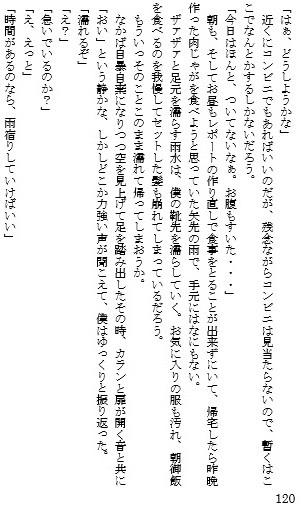 「はぁ、どうしようかな」
　近くにコンビニでもあればいいのだが、残念ながらコンビニは見当たらないので、暫くはこ
こでなんとかするしかないだろう。
「今日はほんと、ついてないなぁ。お腹もすいた・・・」
　朝も、そしてお昼もレポートの作り直しで食事をとることが出来ずにいて、帰宅したら昨晩
作った肉じゃがを食べようと思っていた矢先の雨で、手元にはなにもない。
　ザァザァと足元を濡らす雨水は、僕の靴先を濡らしていく。お気に入りの服も汚れ、朝御飯
を食べるのを我慢してセットした髪も崩れてしまっているだろう。
　もういっそのことこのまま濡れて帰ってしまおうか。
　なかば自暴自棄になりつつ空を見上げて足を踏み出したその時、カランと扉が開く音と共に
「おい」という静かな、しかしどこか力強い声が聞こえて、僕はゆっくりと振り返った。
「濡れるぞ」
「え？」
「急いでいるのか？」
「え、えっと」
「時間があるのなら、雨宿りしていけばいい」
120